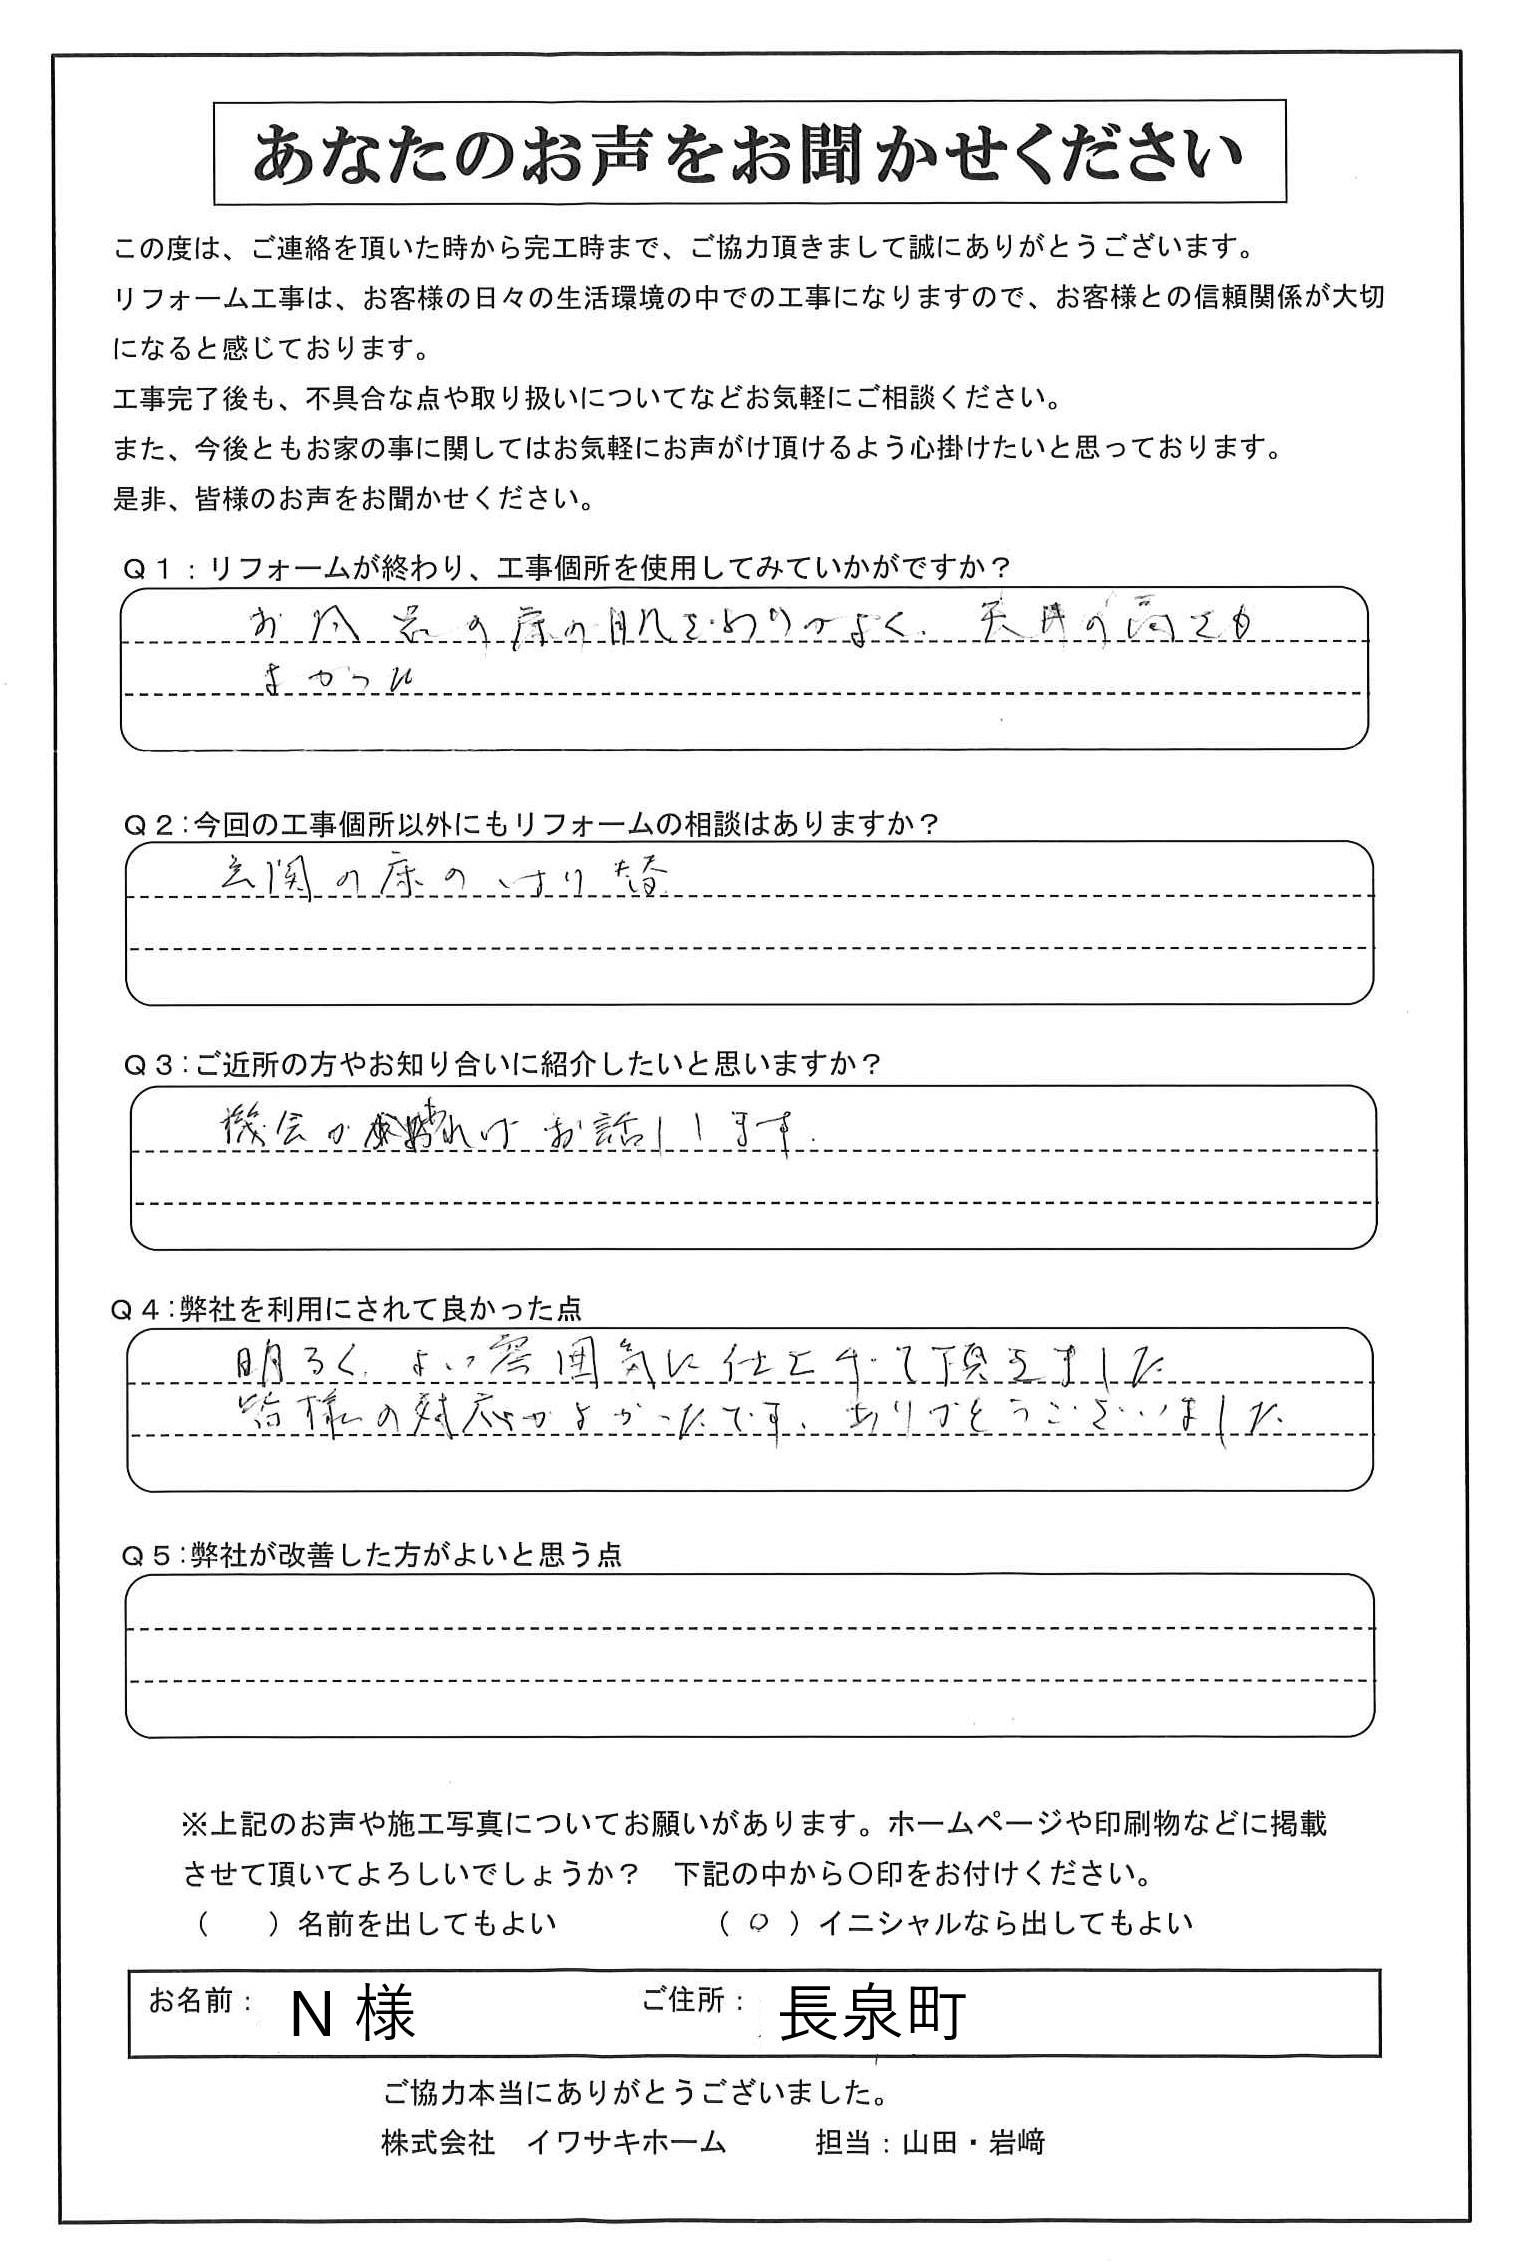 あなたのお声をお聞かせください
この度は、ご連絡を頂いた時から完工時まで、ご協力頂きまして誠にありがとうございます。
リフォーム工事は、お客様の日々の生活環境の中での工事になりますので、お客様との信頼関係が大切
になると感じております。
工事完了後も、不具合な点や取り扱いについてなどお気軽にご相談ください。
また、今後ともお家の事に関してはお気軽にお声がけ頂けるよう心掛けたいと思っております。
是非、皆様のお声をお聞かせください。
Q1：リフォームが終わり、工事個所を使用してみていかがですか？
お風呂の床の肌ざわりがよく、天井の高さも
よかった
Q2：今回の工事個所以外にもリフォームの相談はありますか？
玄関の床の はり替
Q3：ご近所の方やお知り合いに紹介したいと思いますか？
機会が あれば お話しします.
Q4：弊社を利用にされて良かった点
明るく、よい雰囲気に仕上げて頂きました
皆様の対応がよかったです、ありがとうございました
Q5：弊社が改善した方がよいと思う点
※上記のお声や施工写真についてお願いがあります。ホームページや印刷物などに掲載
させて頂いてよろしいでしょうか？　下記の中から〇印をお付けください。
（　　）名前を出してもよい　（ 〇 ）イニシャルなら出してもよい
お名前： N 様　ご住所： 長泉町
ご協力本当にありがとうございました。
株式会社　イワサキホーム　担当：山田・岩﨑